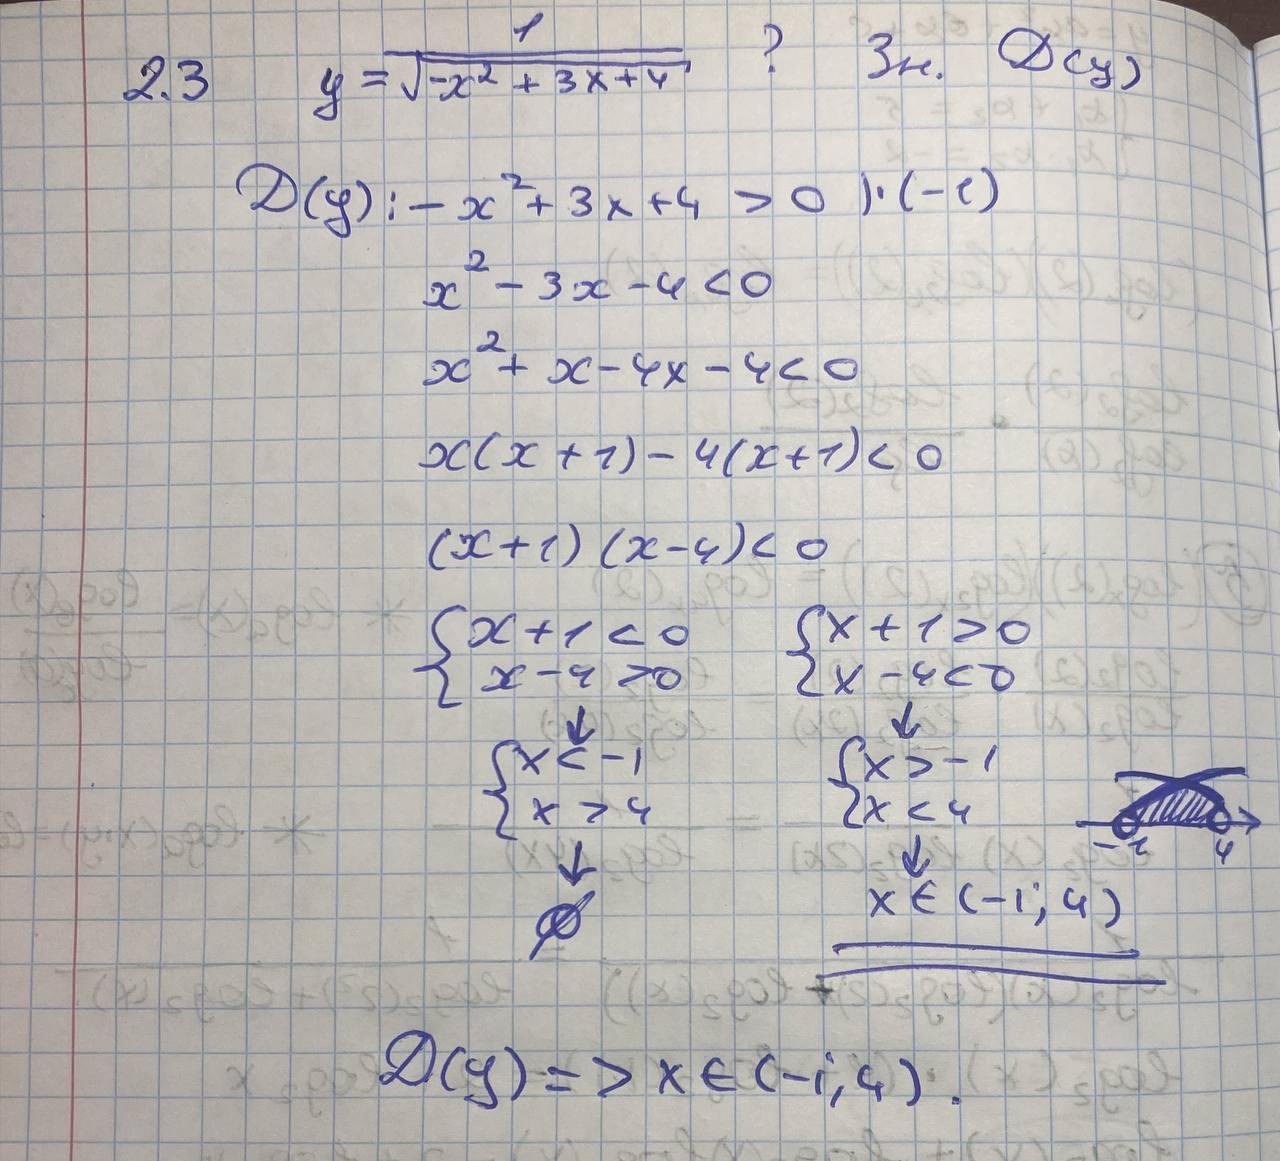 2.3 y = 1/√(-x² + 3x + 4) ? Зн. D(y)
D(y): -x² + 3x + 4 > 0 |·(-1)
x² - 3x - 4 < 0
x² + x - 4x - 4 < 0
x(x + 1) - 4(x+1) < 0
(x+1)(x-4) < 0
{x+1 < 0 {x + 1 > 0
x-4 > 0 x-4 < 0
↓ ↓
{x < -1 {x > -1
x > 4 x < 4
-1 4
↓ ↓
∅ x ∈ (-1; 4)
D(y) => x ∈ (-1; 4).